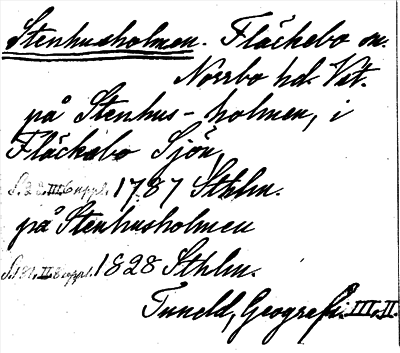 Stenhusholmen. Fläckebo sn.
Norrbo hd. Vstm.
på Stenhus-holmen, i
Fläckebo Sjön,
S.22.III.6 uppl. 1787 Sthlm.
på Stenhusholmen
S.131.II.8 uppl. 1828 Sthlm.
Tuneld, Geografi. III. II.